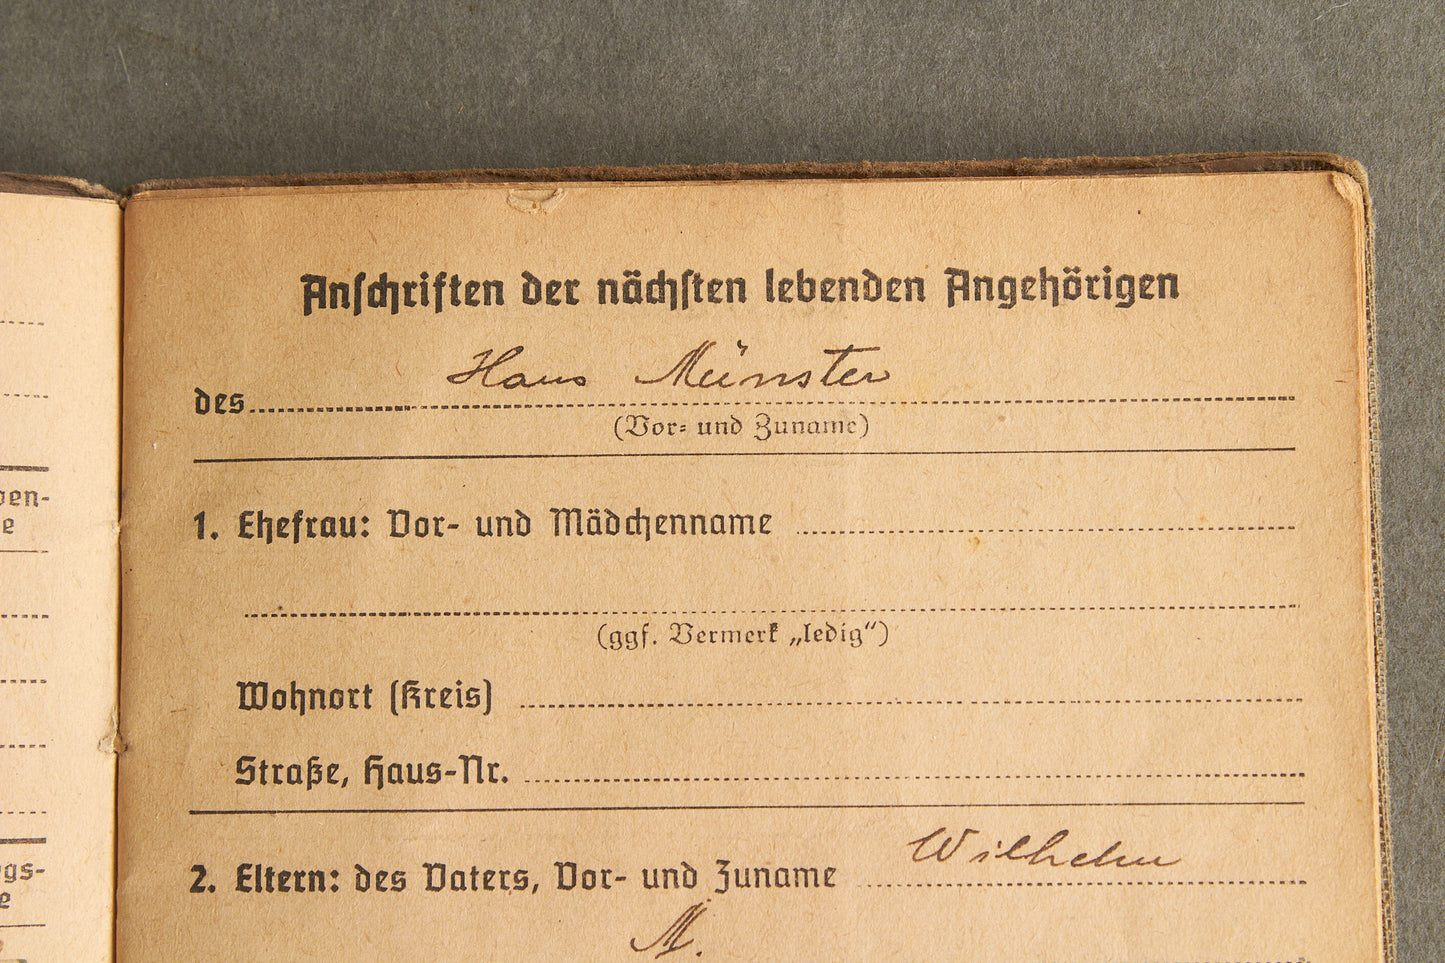 Anschriften der nächsten lebenden Angehörigen
des Hans Münster
(Vor- und Zuname)
1. Ehefrau: Vor- und Mädchenname
(ggf. Vermerk „ledig“)
Wohnort (Kreis)
Straße, Haus-Nr.
2. Eltern: des Vaters, Vor- und Zuname Wilhelm
M.